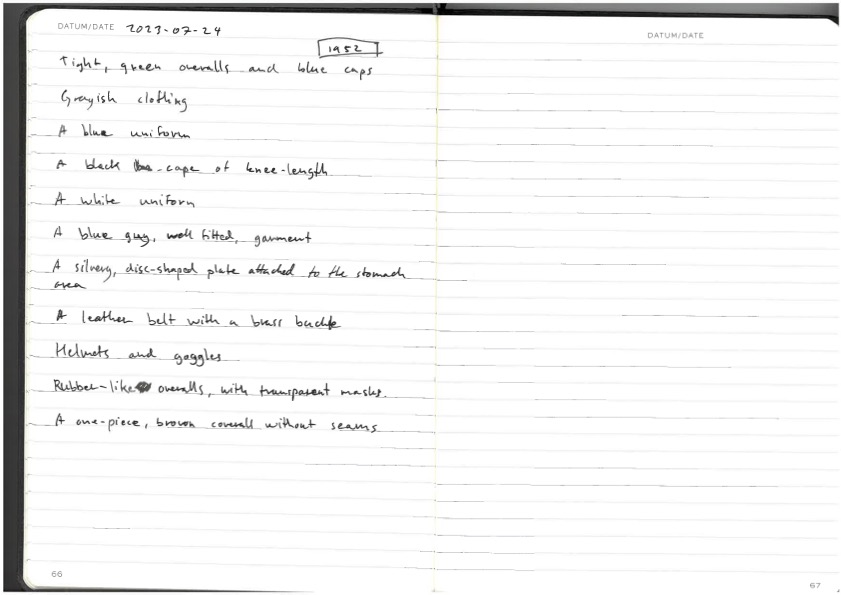 DATUM/DATE 2023-07-24
1952
Tight, green overalls and blue caps
Grayish clothing
A blue uniform
A black cape of knee-length
A white uniform
A blue gray, well fitted, garment
A silvery, disc-shaped plate attached to the stomach
area
A leather belt with a brass buckle
Helmets and goggles
Rubber-like overalls, with transparent masks.
A one-piece, brown coverall without seams
66
DATUM/DATE
67